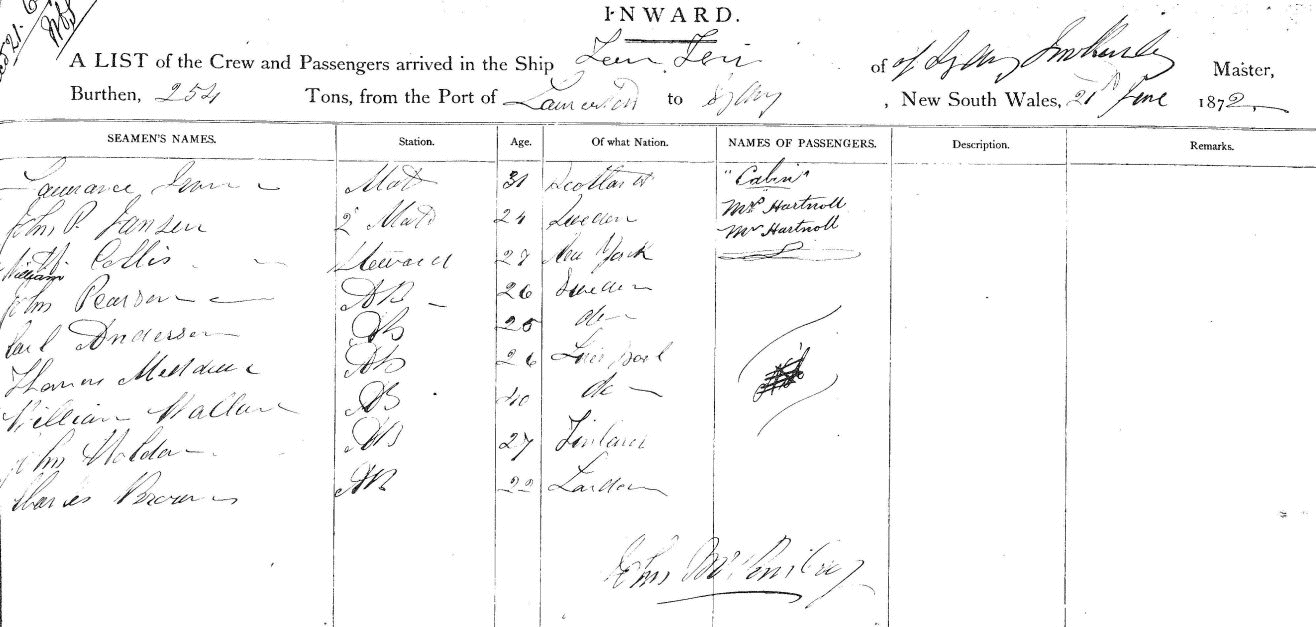 INWARD.
A LIST of the Crew and Passengers arrived in the Ship of of Sydney Master,
Burthen, 254 Tons, from the Port of to Sydney, New South Wales, 21st June 1872
SEAMEN'S NAMES. Station. Age. Of what Nation. NAMES OF PASSENGERS. Description. Remarks.
Laurance Mate 31 Scotland "Cabin"
John P. Jansen 2 Mate 24 Sweden Mrs Hartnoll
Mr Hartnoll
William Collis Steward 27 New York
John Pearson AB 26 Sweden
Carl Anderson AB 25 do
Thomas AB 26 Liverpool
William Wallace AB 40 do
John Holden AB 27 Finland
Charles Brown AB 22 London
John